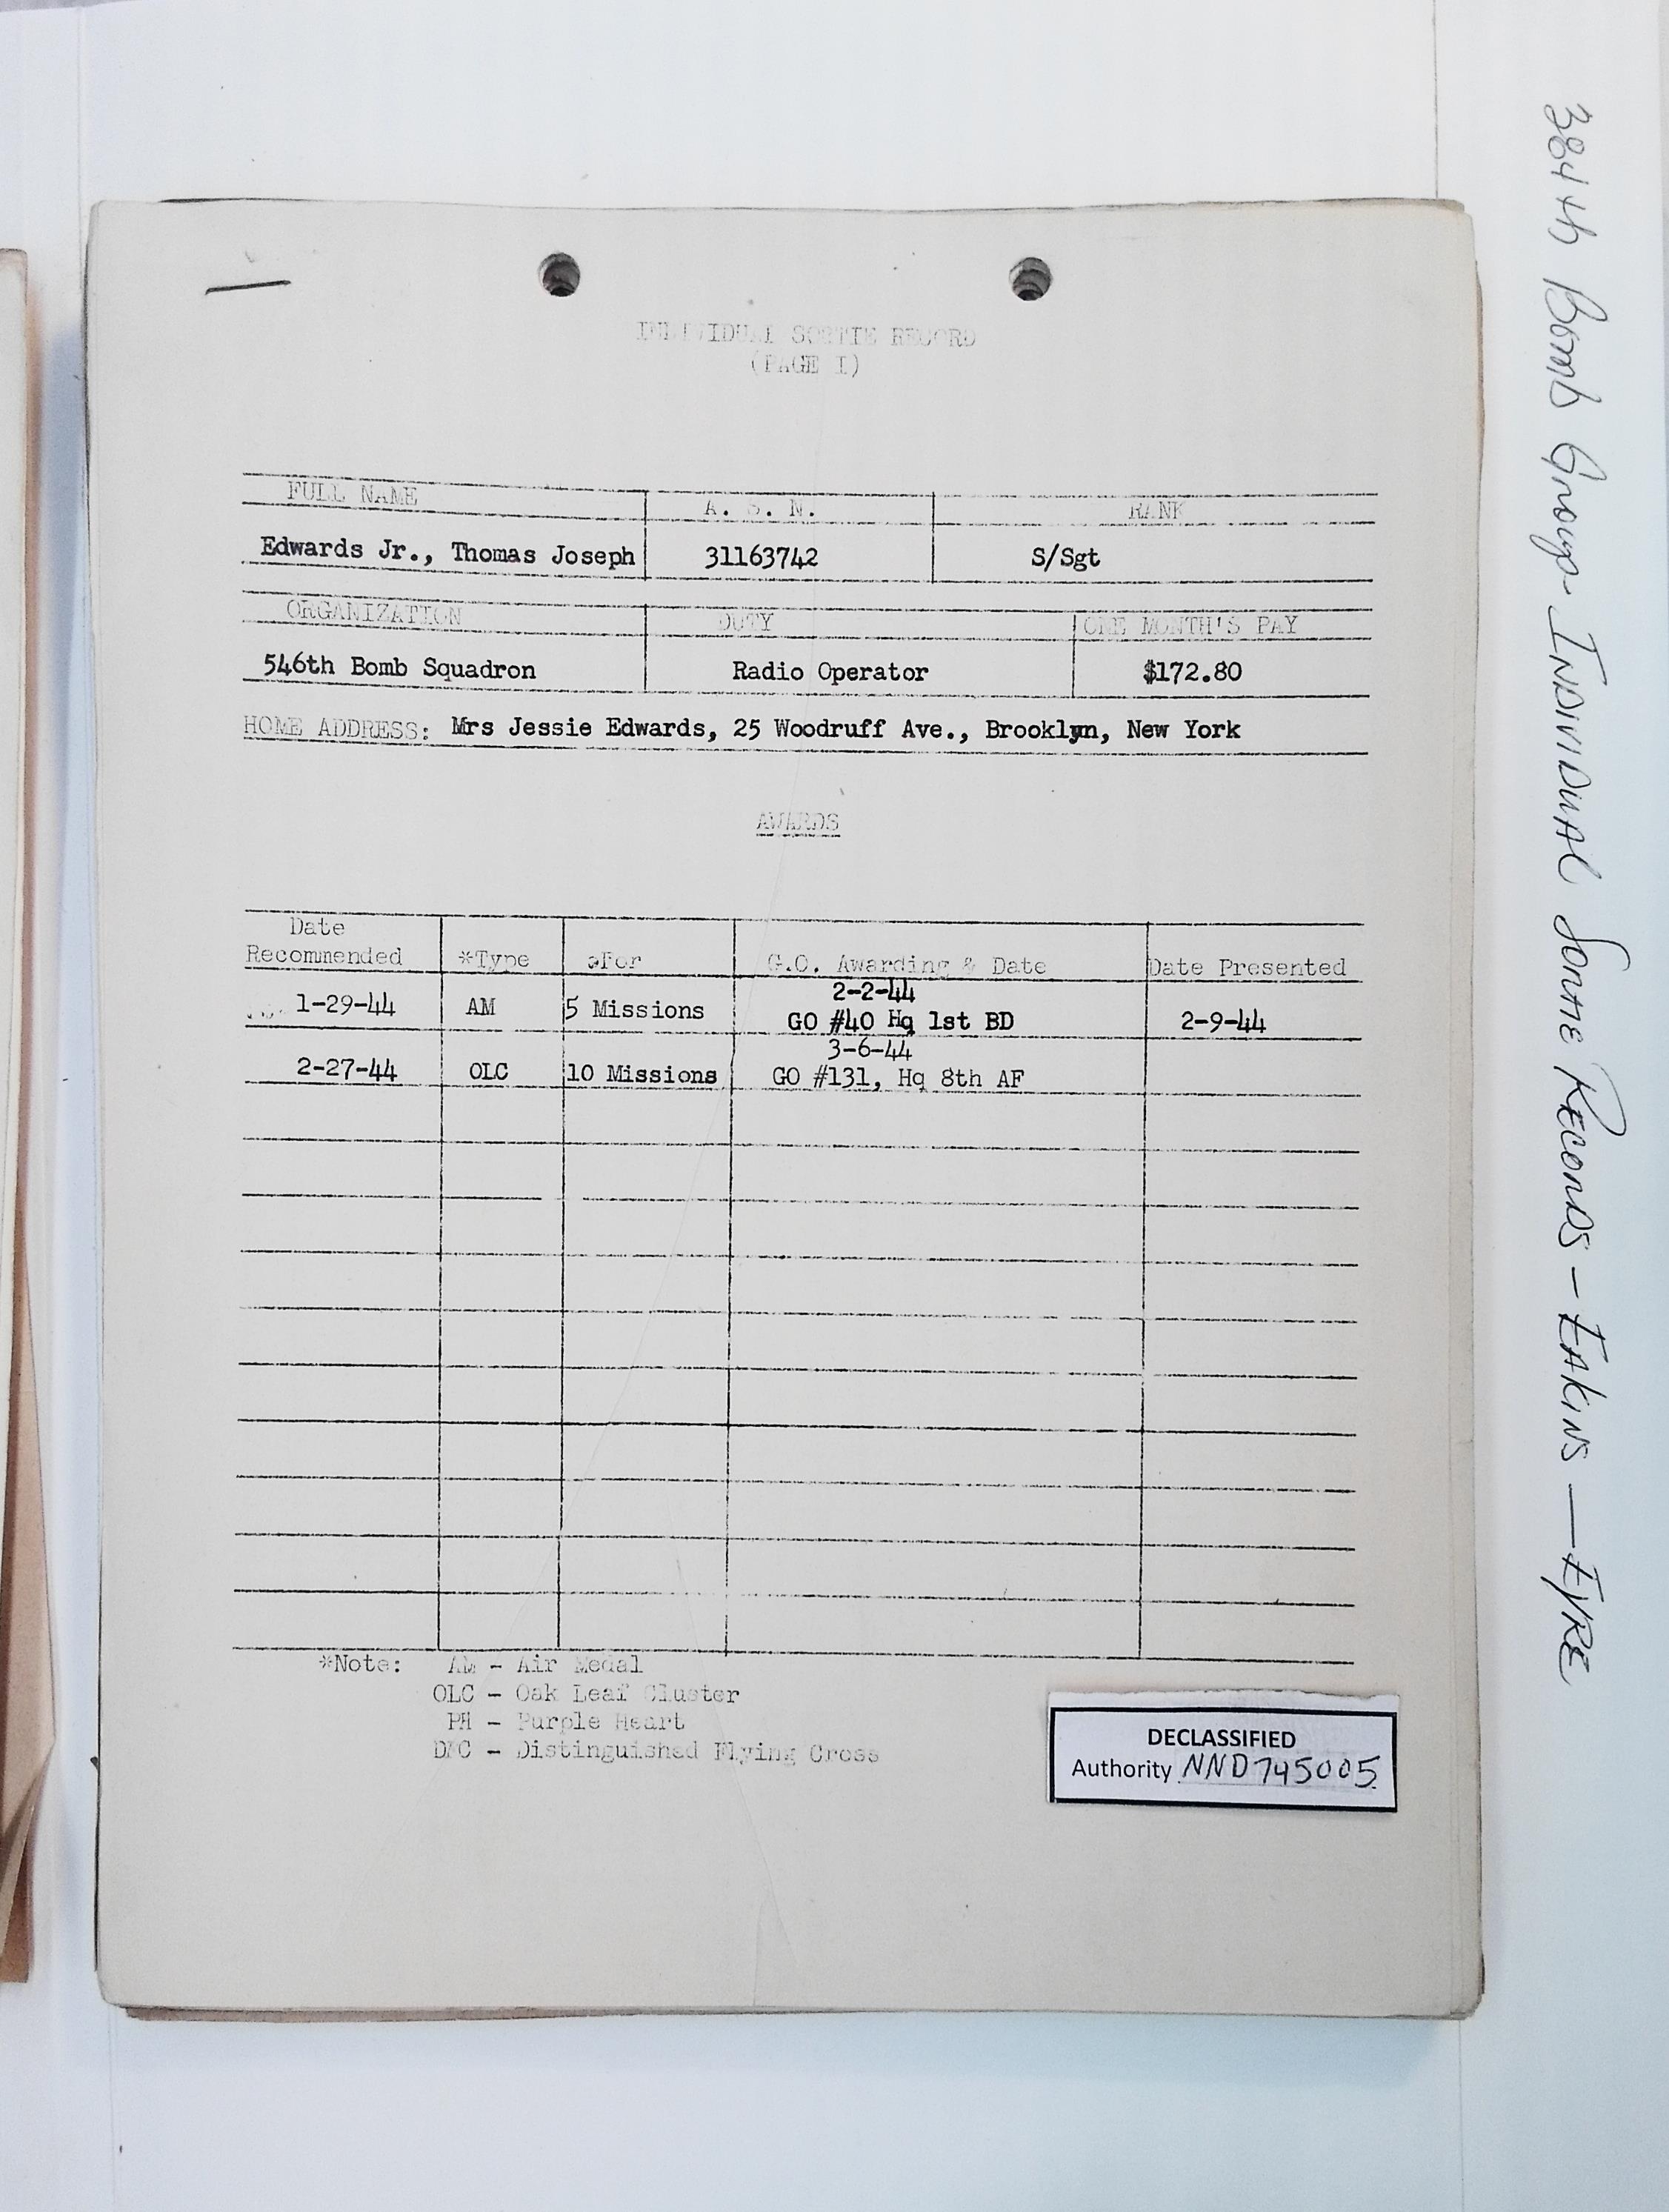 INDIVIDUAL SORTIE RECORD
(PAGE I)
FULL NAME A. S. N. RANK
Edwards Jr., Thomas Joseph 31163742 S/Sgt
ORGANIZATION DUTY ONE MONTH'S PAY
546th Bomb Squadron Radio Operator $172.80
HOME ADDRESS: Mrs Jessie Edwards, 25 Woodruff Ave., Brooklyn, New York
AWARDS
Date
Recommended *Type *For G.O. Awarding & Date Date Presented
2-2-44
1-29-44 AM 5 Missions GO #40 Hq 1st BD 2-9-44
3-6-44
2-27-44 OLC 10 Missions GO #131, Hq 8th AF
*Note: AM - Air Medal
OLC - Oak Leaf Cluster
PH - Purple Heart
DFC - Distinguished Flying Cross
DECLASSIFIED
Authority NND745005
384th Bomb Group - Individual Sortie Records - Eakins - Eyre